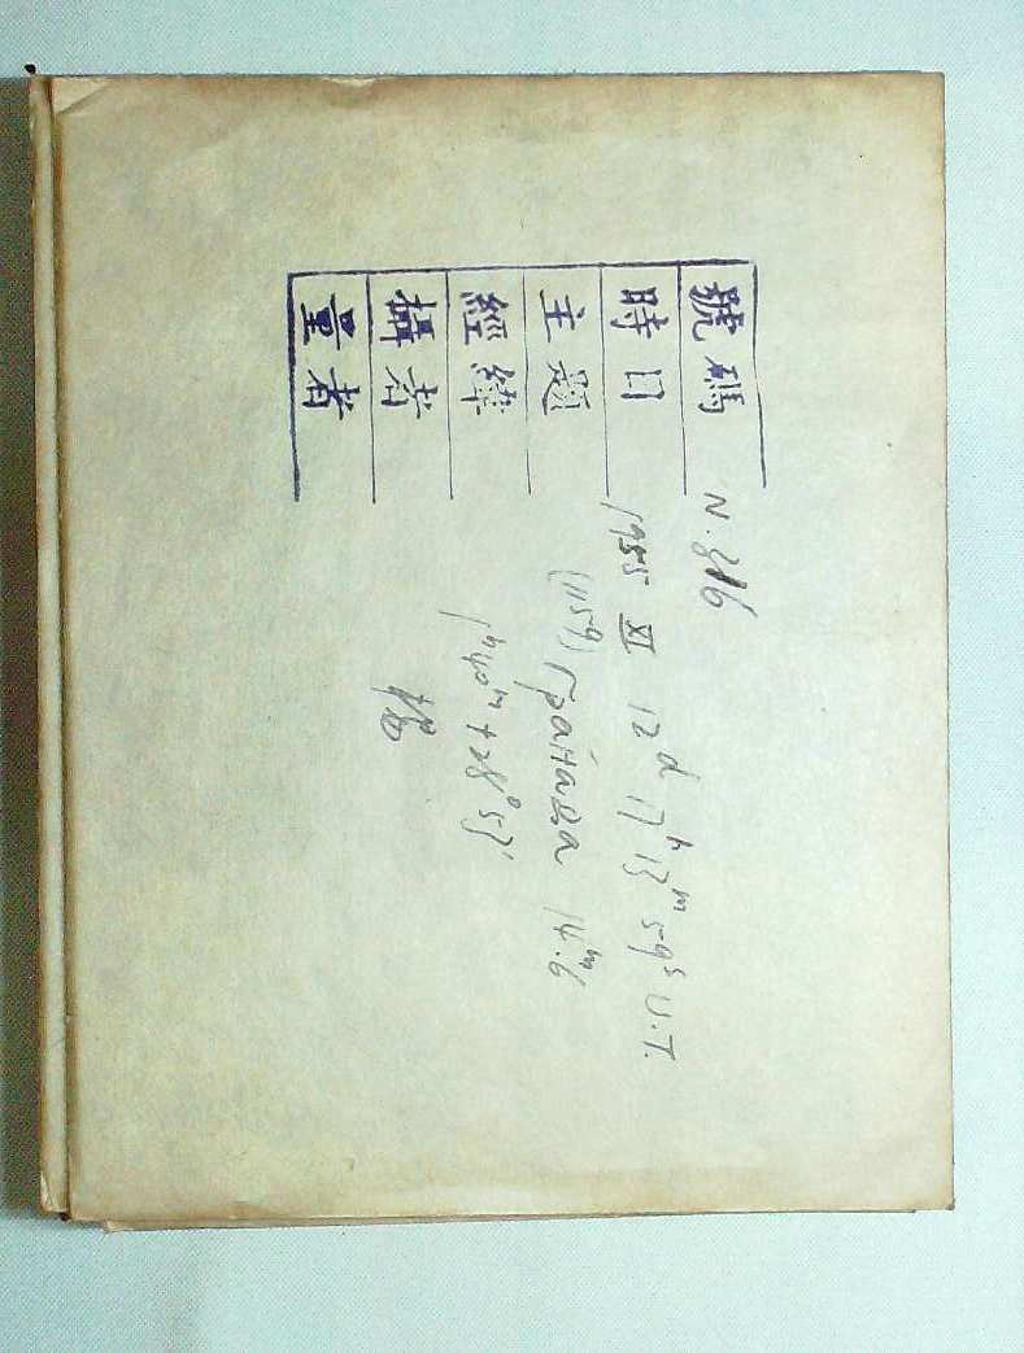 號碼 N. 816
時日 1955 XI 12ᵈ 17ʰ 13ᵐ 59ˢ U.T.
主題 (1159) Гранада 14.ᵐ6
經緯 1ʰ40ᵐ +28°57′
攝者
量者